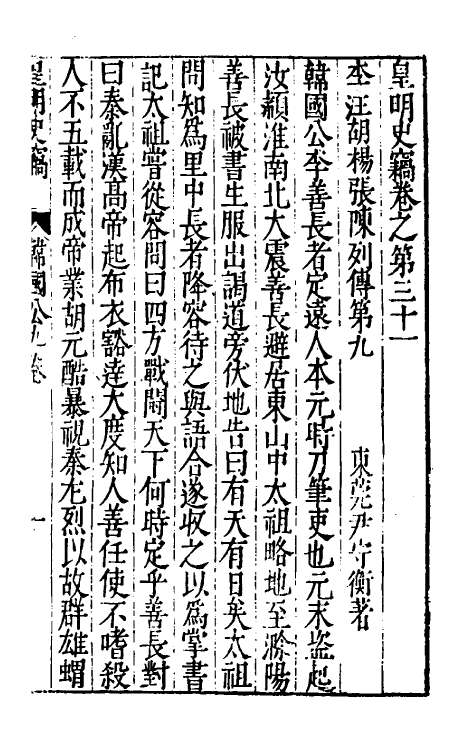 皇明史竊卷之第三十一
李汪胡楊張陳列傳第九
東莞尹守衡著
韓國公李善長者定遠人本元時刀筆吏也元末盜起
汝潁淮南北大震善長避居東山中太祖略地至滁陽
善長被書生服出謁道旁伏地告曰有天有日矣太祖
問知為里中長者降容待之與語合遂收之以為掌書
記太祖嘗從容問曰四方戰鬪天下何時定乎善長對
曰秦亂漢高帝起布衣豁達大度知人善任使不嗜殺
人不五載而成帝業胡元酷暴視秦尤烈以故群雄蝟
皇明史竊
韓國公九卷
一